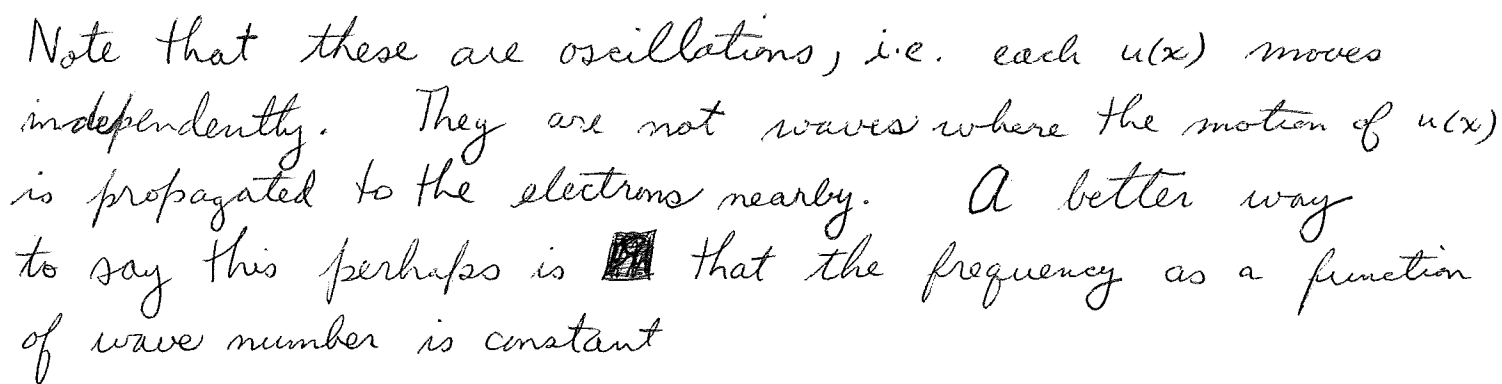 Note that these are oscillations, i.e. each u(x) moves
independently. They are not waves where the motion of u(x)
is propagated to the electrons nearby. A better way
to say this perhaps is that the frequency as a function
of wave number is constant